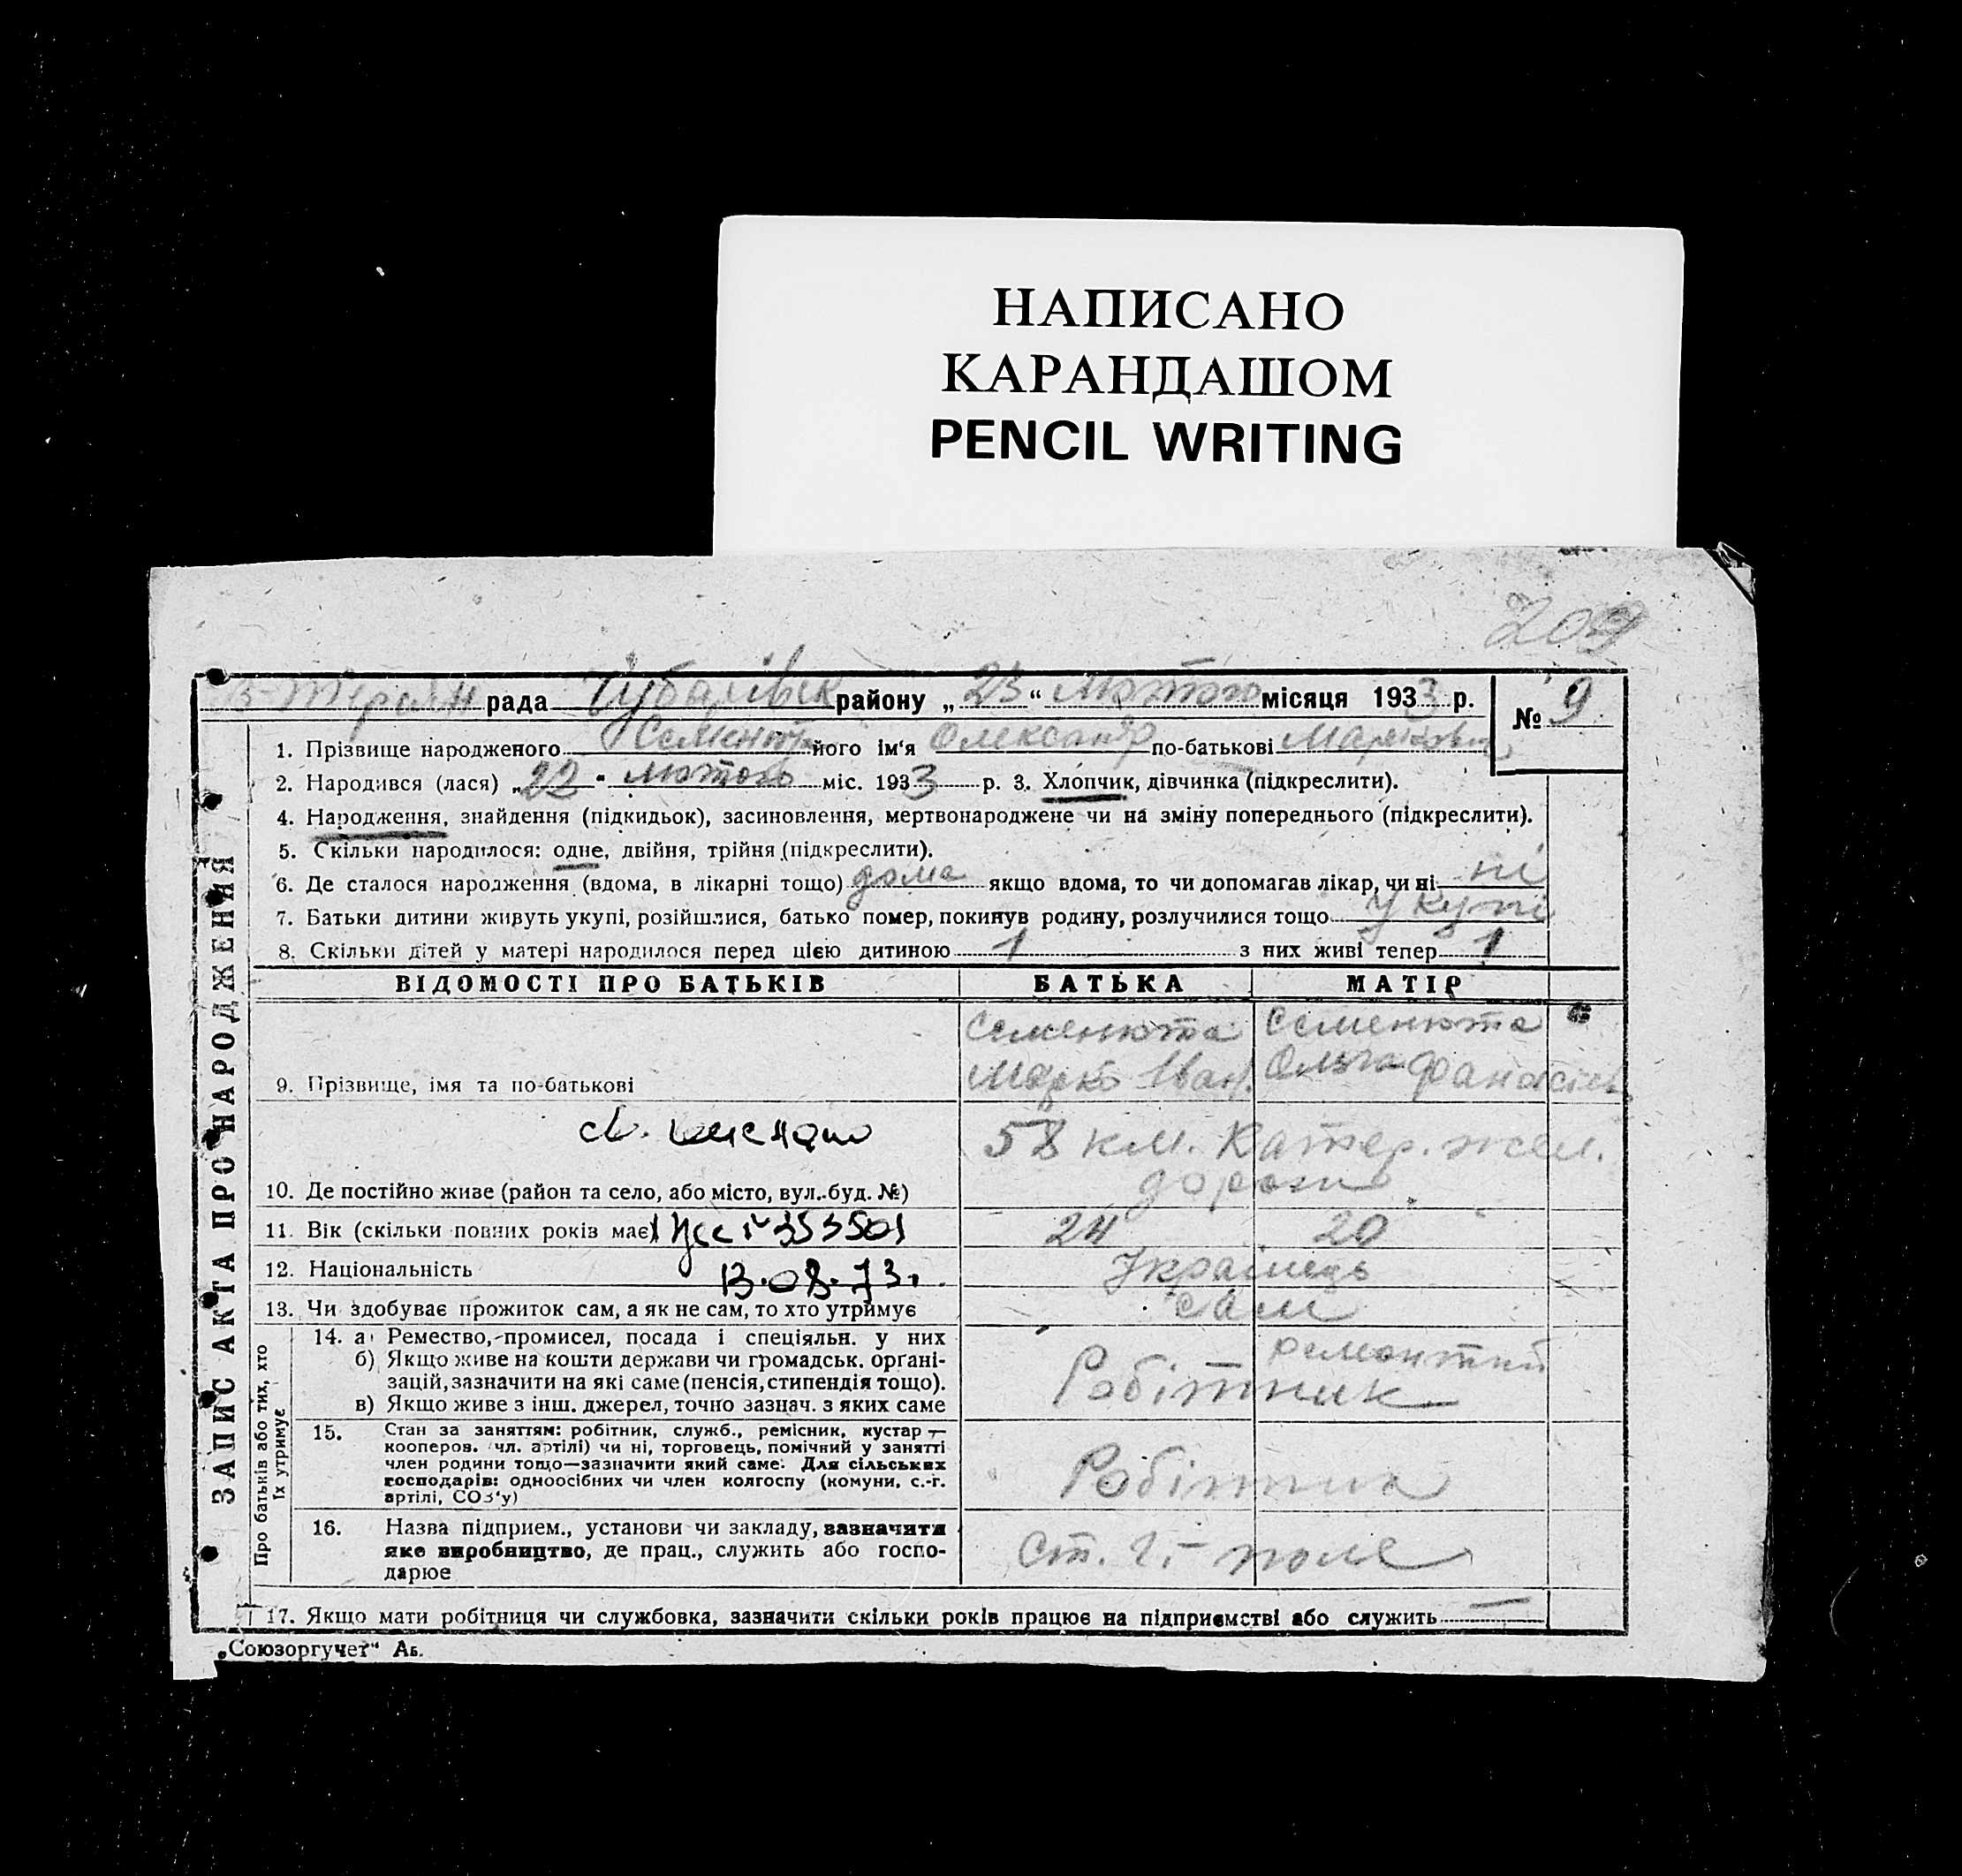 НАПИСАНО
КАРАНДАШОМ
PENCIL WRITING
209
В-Терсян рада Чубарівськ району „23“ лютого місяця 1933 р.
№ 9
1. Прізвище народженого Семенюта його ім‘я Олександр по-батькові Маркович
2. Народився (лася) „22" лютого міс. 1933 р. 3. Хлопчик, дівчинка (підкреслити).
4. Народження, знайдення (підкидьок), засиновлення, мертвонароджене чи на зміну попереднього (підкреслити).
5. Скільки народилося: одне, двійня, трійня (підкреслити).
6. Де сталося народження (вдома, в лікарні тощо) дома якщо вдома, то чи допомагав лікар, чи ні ні
7. Батьки дитини живуть укупі, розійшлися, батько помер, покинув родину, розлучилися тощо укупі
8. Скільки дітей у матері народилося перед цією дитиною 1 з них живі тепер 1
ЗАПИС АКТА ПРО НАРОДЖЕННЯ
ВІДОМОСТІ ПРО БАТЬКІВ БАТЬКА МАТІР
Семенюта Семенюта
9. Прізвище, імя та по-батькові Марко Іван. Ольга Фанасіев
58 км. Катер. жел.
дороги
10. Де постійно живе (район та село, або місто, вул. буд. №)
11. Вік (скільки повних років має) 353501 24 20
12. Національність 13.08.73г. Українець
13. Чи здобуває прожиток сам, а як не сам, то хто утримує сам
Про батьків або тих, хто
їх утримує
14. а) Ремество, промисел, посада і спеціяльн. у них
б) Якщо живе на кошти держави чи громадськ. органі-
зацій, зазначити на які саме (пенсія, стипендія тощо).
в) Якщо живе з інш. джерел, точно зазнач. з яких саме
ремонтний
Робітник
15. Стан за заняттям: робітник, служб., ремісник, кустар —
кооперов. чл. артілі) чи ні, торговець, помічний у занятті
член родини тощо—зазначити який саме. Для сільських
господарів: одноосібних чи член колгоспу (комуни, с.-г.
артілі, СОЗ‘у)
16. Назва підприєм., установи чи закладу, зазначити
яке виробництво, де прац., служить або госпо-
дарює
Ст. Г.-поле
17. Якщо мати робітниця чи службовка, зазначити скільки років працює на підприємстві або служить —
„Союзоргучет“ Аб.